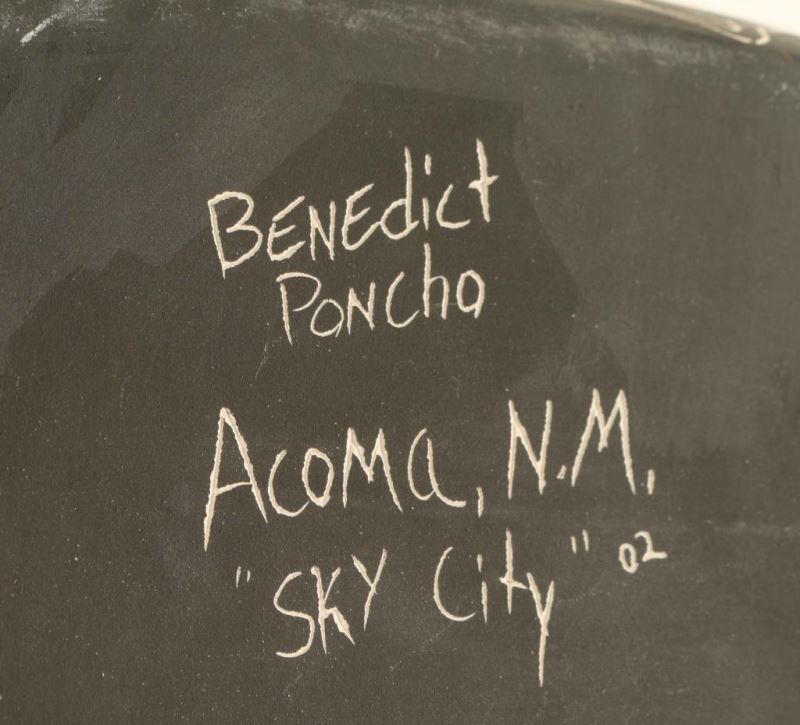 BENEdict
PoNcho
ACOMA, N.M.
"SKY City" 02